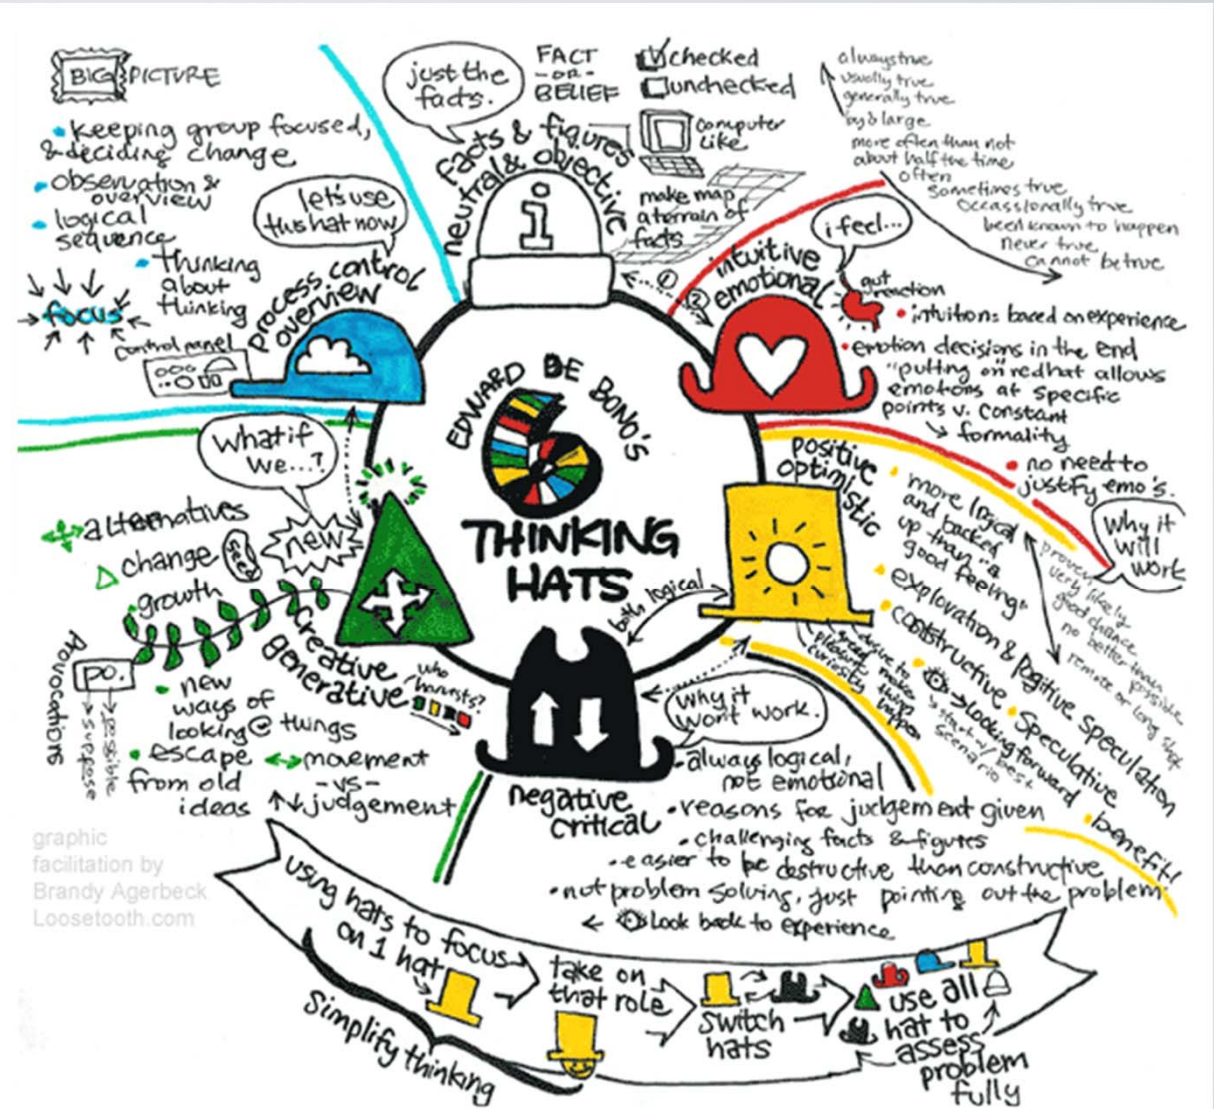 BIG PICTURE
keeping group focused,
& deciding change
observation &
overview
logical
sequence
thinking
about
thinking
focus
control panel
let's use
this hat now
process control
overview
just the
facts.
FACT
-OR-
BELIEF
checked
unchecked
facts & figures
neutral & objective
computer
like
make map
a terrain of
facts
i
always true
usually true
generally true
by & large
more often than not
about half the time
often
sometimes true
occassionally true
been known to happen
never true
cannot be true
1
2
intuitive
emotional
i feel...
gut
reaction
intuition: based on experience
emotion decisions in the end
"putting on" red hat allows
emotions at specific
points v. constant
formality
no need to
justify emo's.
EDWARD DE BONO'S
6
THINKING
HATS
positive
optimistic
more logical
and backed
up than "a
good feeling"
exploration & positive speculation
constructive
speculative
looking forward
start w/ best
scenario
benefit!
why it
will
work
proven
very likely
good chance
no better than possible
remote or long shot
pleasure
curiosity
desire to
make things
happen
both logical
what if
we...?
new
alternatives
change
seed
growth
creative
generative
who
harvests?
provocations
po.
suppose
possible
new
ways of
looking @ things
escape
from old
ideas
movement
-vs-
judgement
why it
won't work.
negative
critical
always logical,
not emotional
reasons for judgement given
challenging facts & figures
easier to be destructive than constructive
not problem solving, just pointing out the problem
Look back to experience
graphic
facilitation by
Brandy Agerbeck
Loosetooth.com
using hats to focus
on 1 hat
take on
that role
switch
hats
use all
hat to
assess
problem
fully
simplify thinking